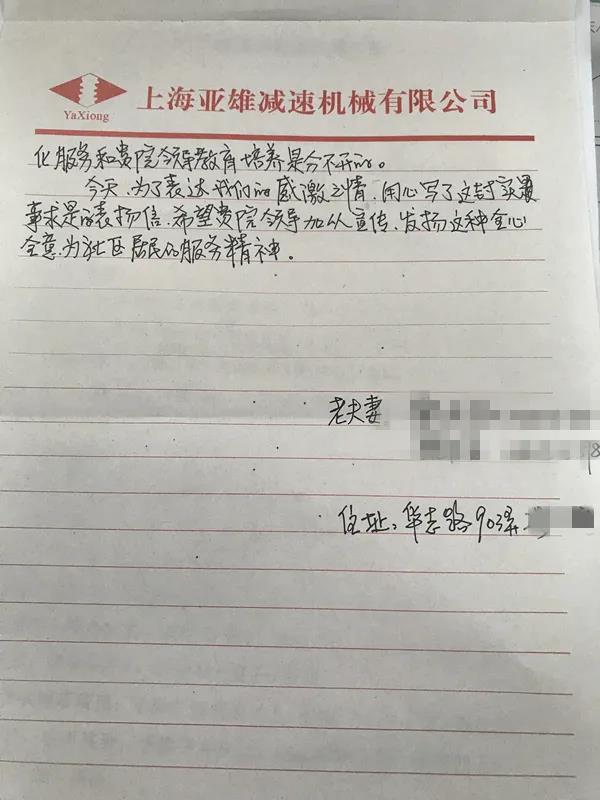 YaXiong
上海亚雄减速机械有限公司
化服务和贵院领导教育培养是分不开的。
今天,为了表达我们的感激之情,用心写了这封实
事求是的表扬信,希望贵院领导加以宣传、发扬这种全心
全意为社区居民的服务精神。
老夫妻
8
住址:华志路90弄